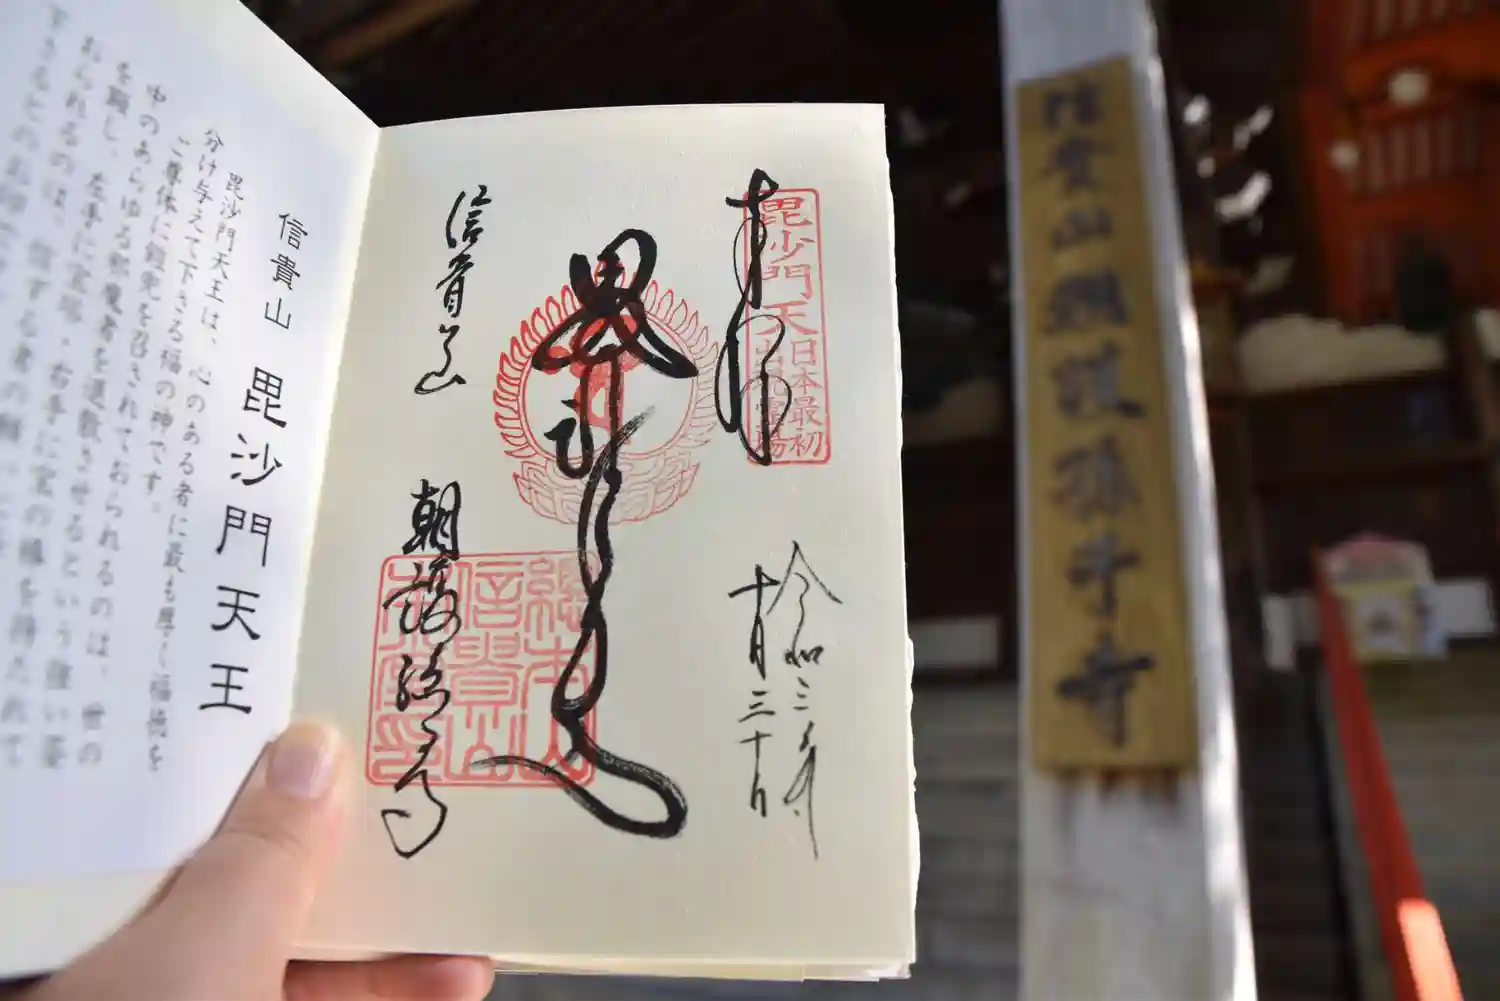 奉拝
毘沙門天
日本最初
出現霊場
令和三年
十月三十日
毘沙門天王
信貴山
朝護孫子寺
総本山
信貴山
信貴山 毘沙門天王
毘沙門天王は、心のある者に最も早く福徳を
分け与えて下さる福の神です。
ご尊体に鎧兜を召されておられるのは、世の
中のあらゆる邪魔者を退散させるという強い姿
を顕し、左手に宝塔・右手に宝の棒を持たれて
おられるのは、信ずる者の願い
信貴山朝護孫子寺